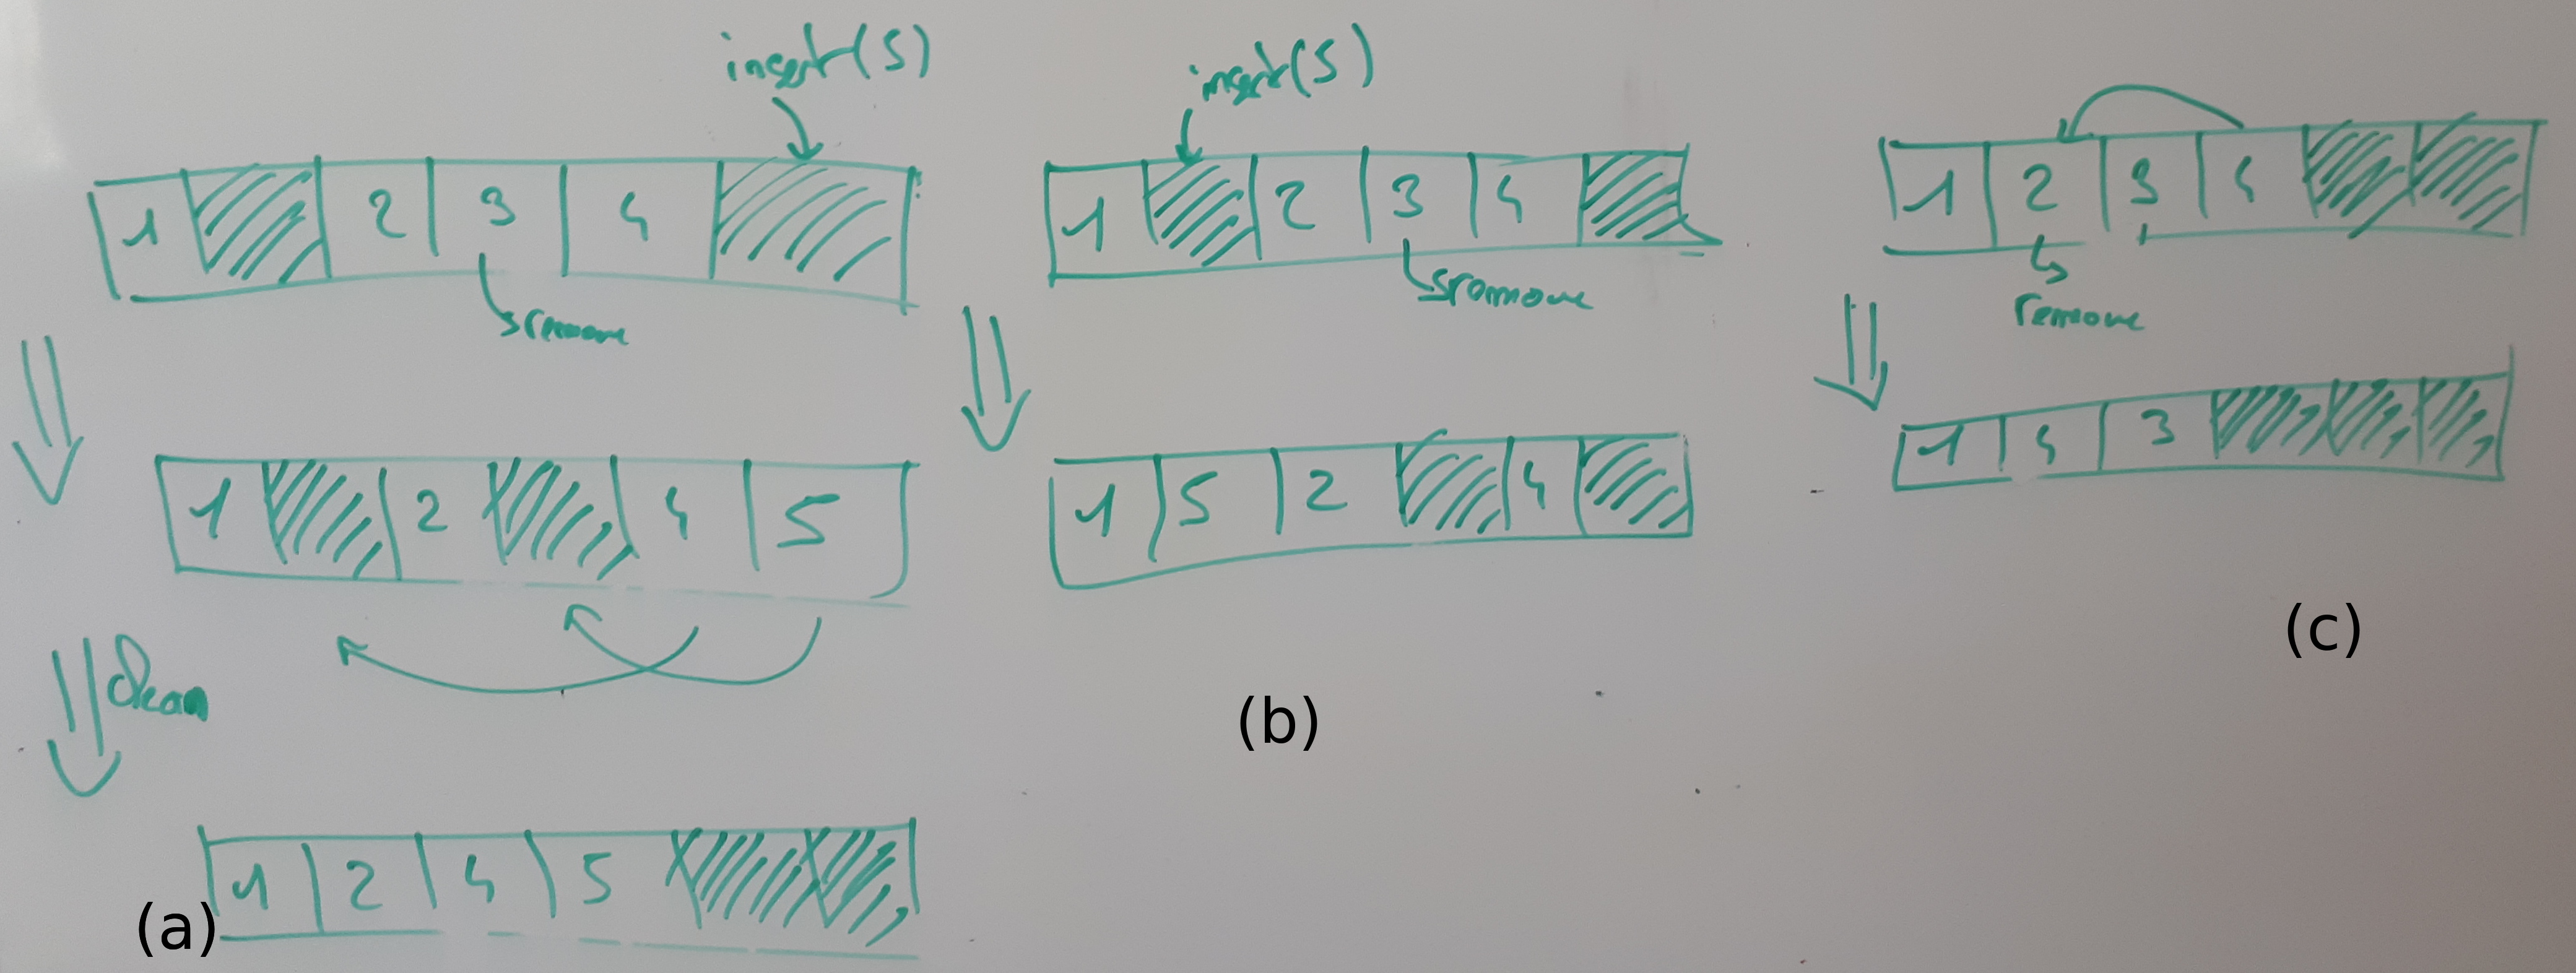 insert(5)
1 2 3 4
remove
1 2 4 5
clean
1 2 4 5
(a)
insert(5)
1 2 3 4
remove
1 5 2 4
(b)
1 2 3 4
remove
1 4 3
(c)